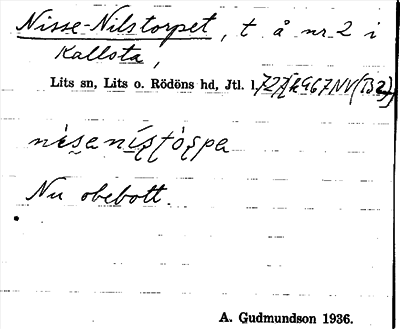 Nisse-Nilstorpet, t. å nr 2 i
Kallsta,
Lits sn, Lits o. Rödöns hd, Jtl.
Nu obebott.
A. Gudmundson 1936.